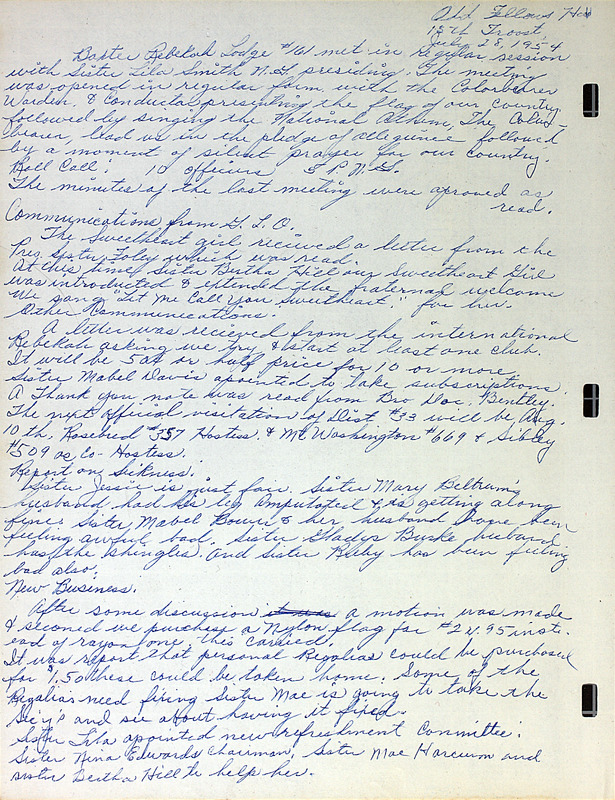 Odd Fellows Hall
15th Troost
July 28, 1954
Baxter Rebekah Lodge #161 met in Regular session
with Sister Lila Smith N.G. presiding. The meeting
was opened in regular form with the Colorbearer
Warden & Conductor presenting the flag of our Country.
followed by singing the National Anthem. The Color
bearer, lead us in the pledge of allegience followed
by a moment of silent prayer for our country.
Roll Call: 10 officers 5 P.N.G.
The minutes of the last meeting were aproved as
read.
Communications from G. L. O.
The Sweetheart girl recieved a letter from the
Pres. Sister Foley which was read.
At this time Sister Bertha Hill our Sweetheart Girl
was introduced & extended the fraternal welcome
We sang "Let Me Call You Sweetheart." for her.
Other Communications.
A letter was recieved from the international
Rebekah asking we try & start at least one club.
It will be 50¢ or half price for 10 or more
Sister Mabel Davis apointed to take subscriptions.
A Thank you note was read from Bro Doc. Bentley.
The next official visitation of Dist #33 will be Aug.
10th. Rosebud #357 Hostess & Mt Washington #669 & Sibley
#509 as Co-Hostess.
Report on Sickness.
Sister Jessie is just fair. Sister Mary Beltram's
husband had his leg Amputated & is getting along
fine. Sister Mabel & her husband have been
feeling awful bad. Sister Gladys Burke husband
has the shingles. And Sister has been feeling
bad also.
New Business.
After some discussion a motion was made
& second we purchase a Nylon flag for $24.95 inst-
ead of rayon one, this carried.
It was report that personal Regalias could be purchased
for $1.50 these could be taken home. Some of the
Regalias need fixing Sister Mae is going to take the
Sec'y's and see about having it fixed.
Sister Lila apointed new refreshment Committee:
Sister Nina Edwards Chairman, Sister Mae Harcum and
sister Bertha Hill to help her.